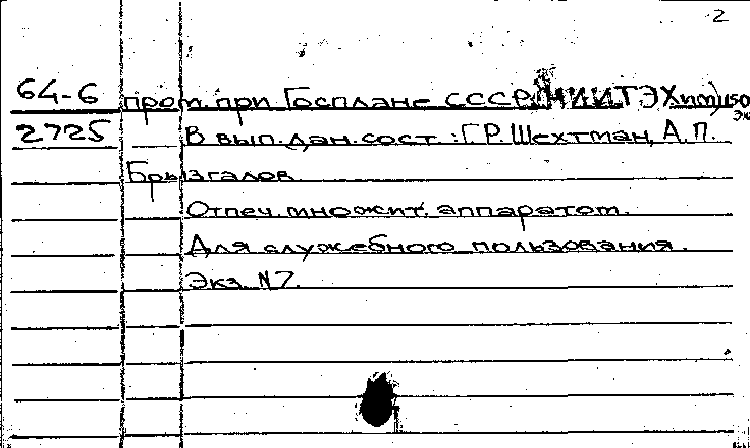 2
64-6 пром. при Госплане СССР. (НИИТЭХим) 150
экз
2725 В вып. дан. сост.: Г.Р. Шехтман, А.П.
Брызгалов.
Отпеч. множит. аппаратом.
Для служебного пользования.
Экз. N7.